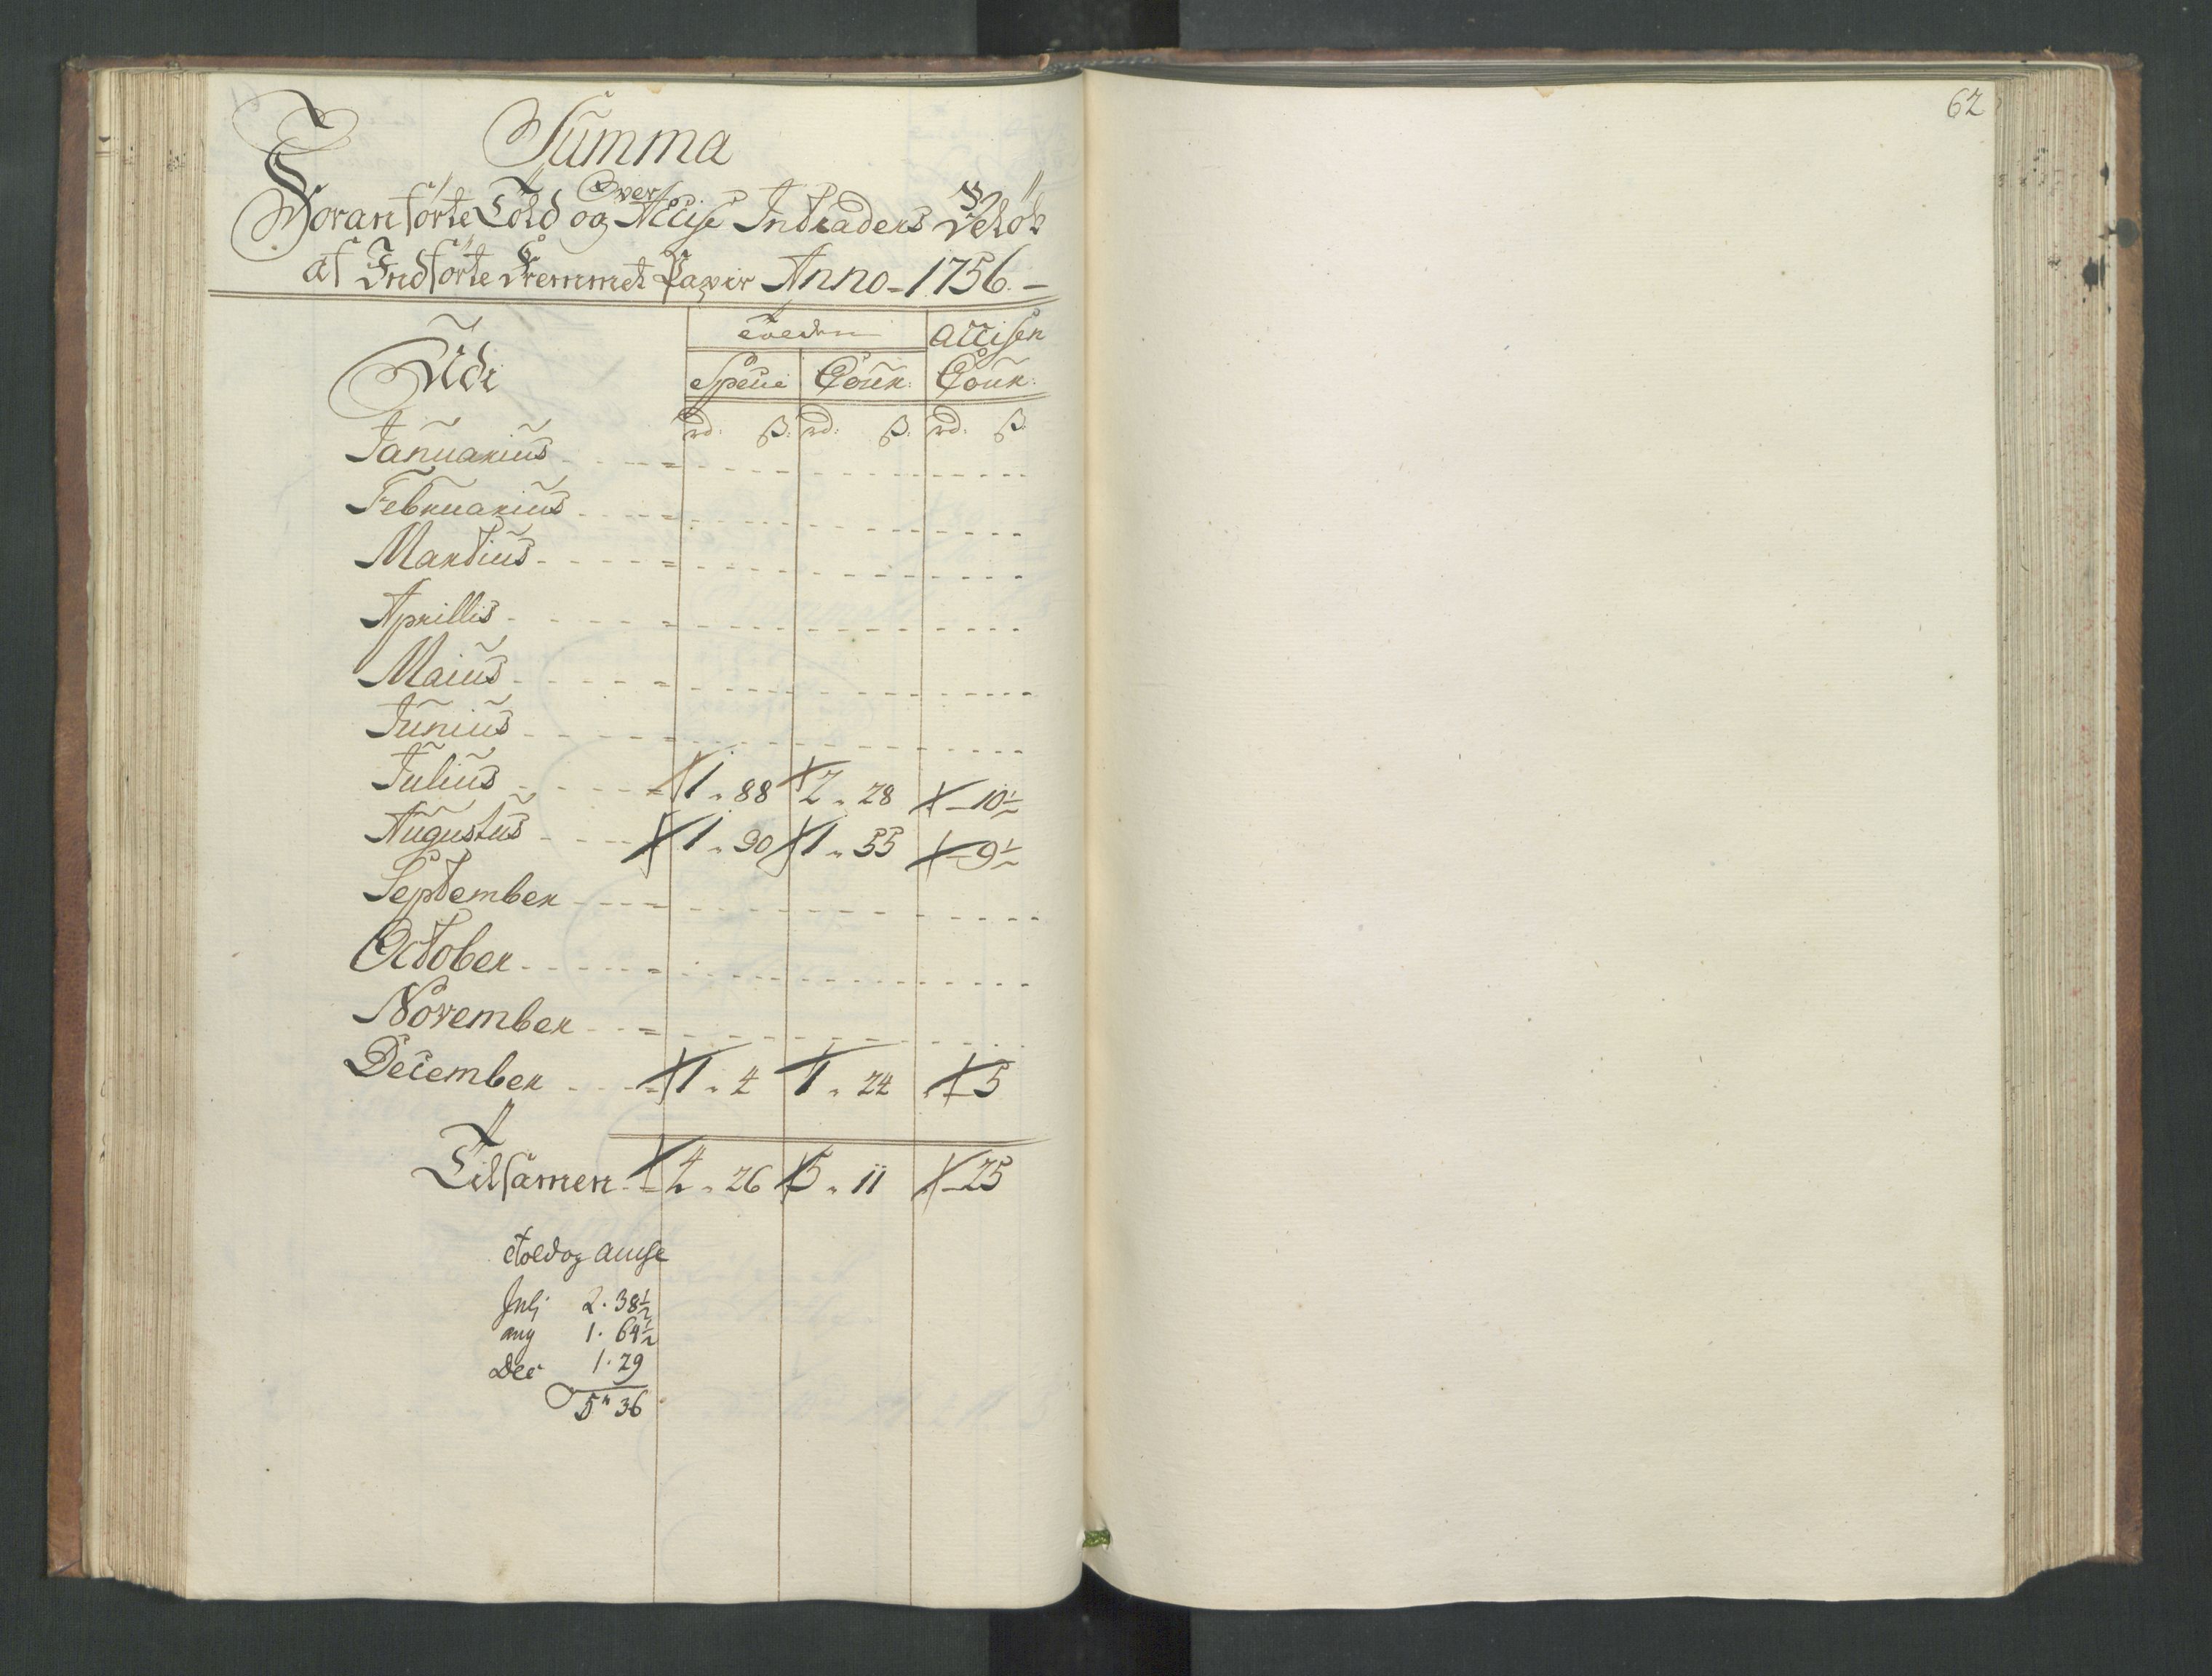 Summa
Over
Foranførte Told og Accise Intraders Beløb
af Indførte Fremmet Papir Anno 1756. –
Udi
Tolden
accisen
Specie
Cour:
Cour:
rd: ß: rd: ß: rd: ß
Januarius
Februarius
Martius
Aprillis
Maius
Junius
Julius 1 " 88 2 " 28 – 10½
Augustus 1 " 30 1 " 55 – 9½
September
October
November
December 1 " 4 1 " 24 – 5
Tilsamen 4 " 26 5 " 11 – 25
Told og accise
Julj 2. 38½
aug 1. 64½
Dec 1. 29
5 " 36
62